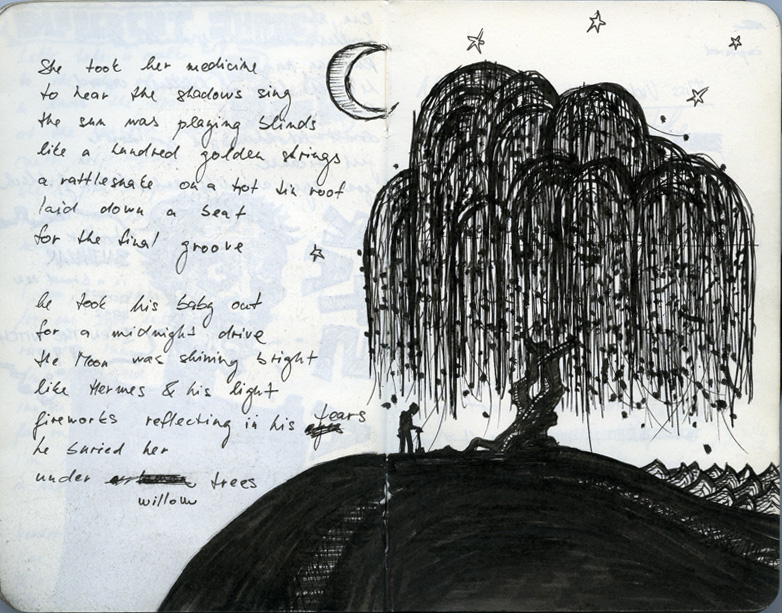 She took her medicine
to hear the shadows sing
the sun was playing blinds
like a hundred golden strings
a rattlesnake on a hot tin roof
laid down a beat
for the final groove
he took his baby out
for a midnight drive
the Moon was shining bright
like Hermes & his light
fireworks reflecting in his tears
he buried her
under willow trees